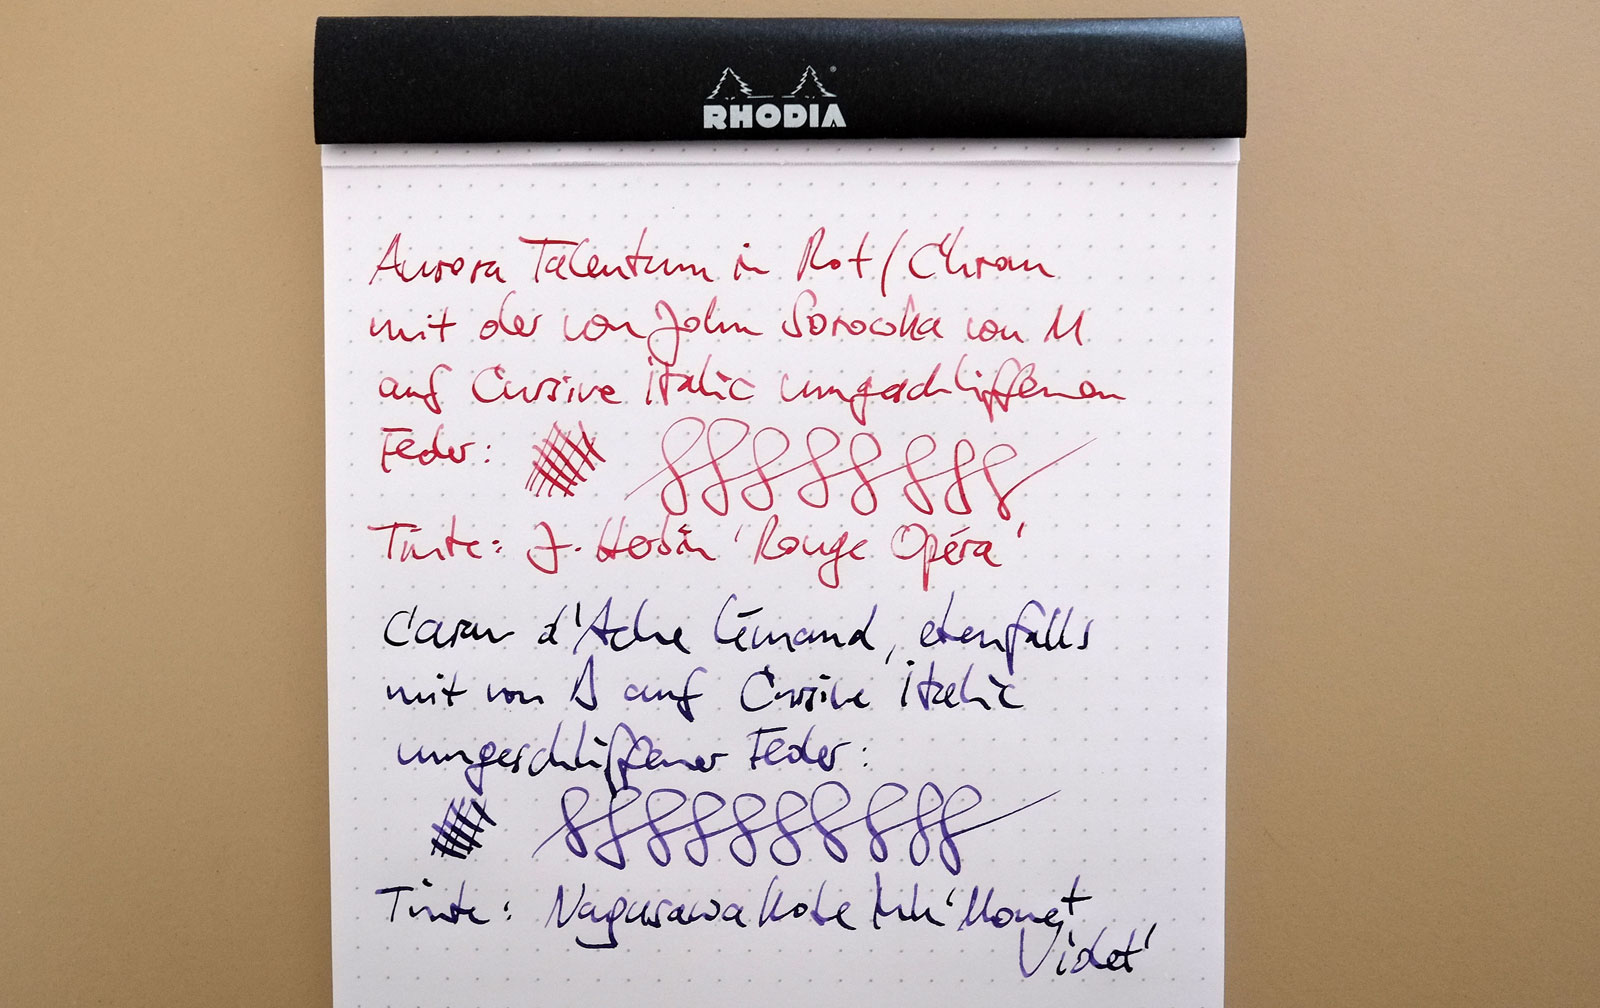 RHODIA
Aurora Talentum in Rot/Chrom
mit der von John Sorowka von M
auf Cursive italic umgeschliffenen
Feder:
Tinte: J. Herbin 'Rouge Opéra'
Caran d'Ache Léman, ebenfalls
mit von B auf Cursive italic
umgeschliffener Feder:
Tinte: Nagasawa Kobe Ink 'Monet
Violet'